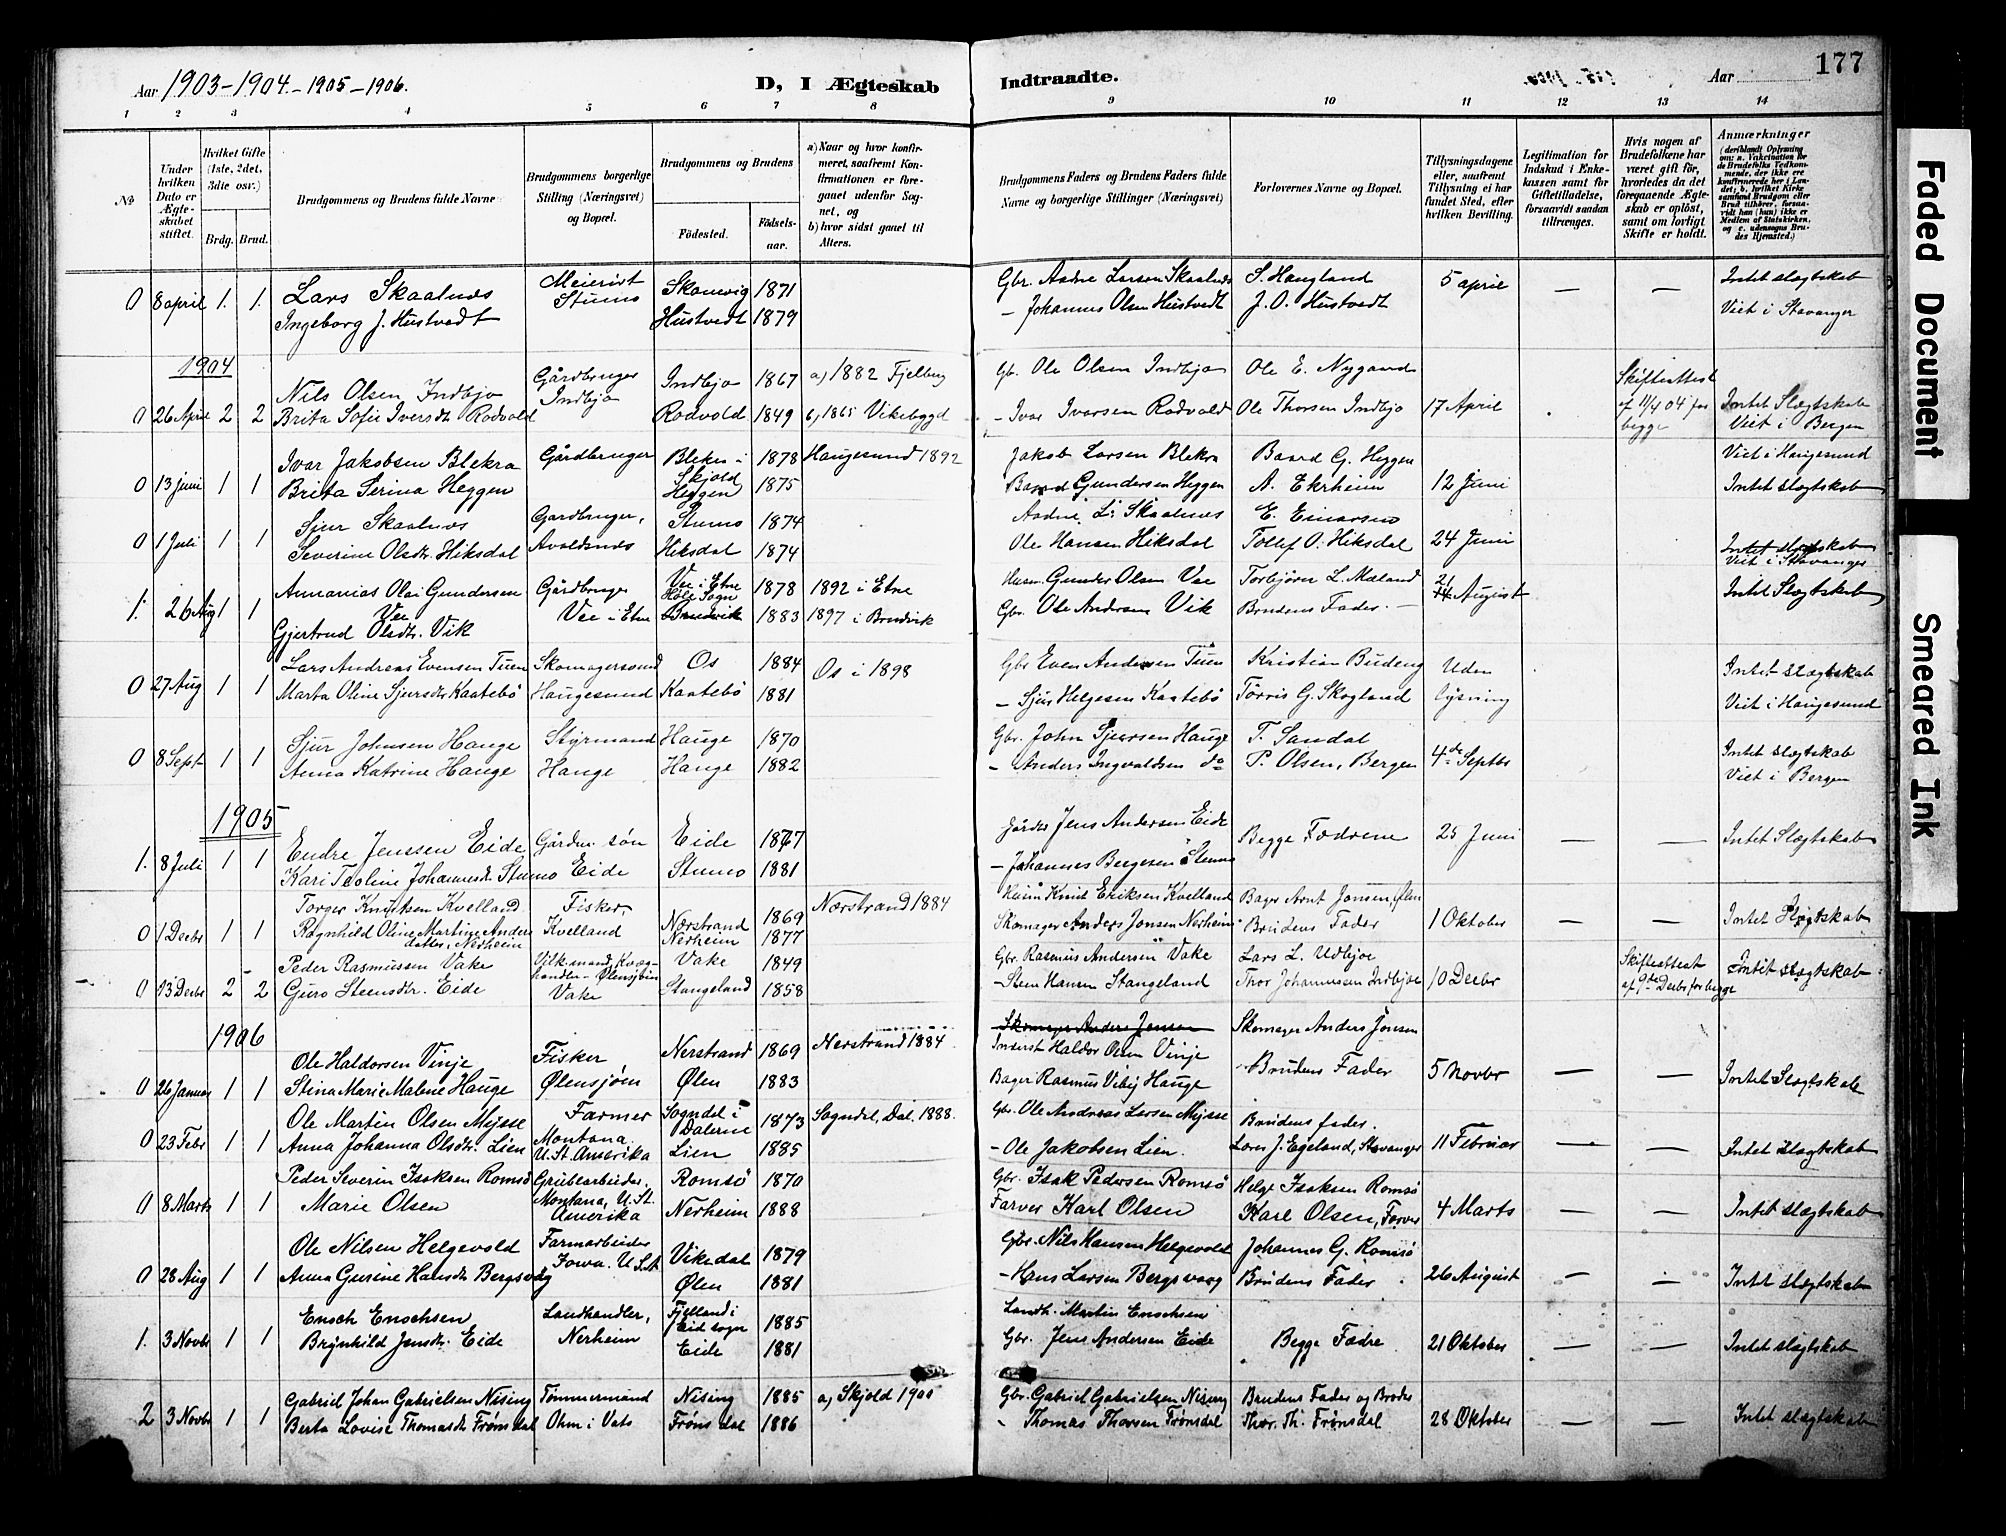 177
Aar 1903-1904.-1905-1906.
D, I Ægteskab
Indtraadte.
Aar
1 2 3 4 5 6 7 8 9 10 11 12 13 14
No
Under hvilken Dato er Ægteskabet stiftet.
Hvilket Gifte (1ste, 2det, 3die osv.)
Brdg. Brud.
Brudgommens og Brudens fulde Navne
Brudgommens borgerlige Stilling (Næringsvei) og Bopæl.
Brudgommens og Brudens
Fødested.
Fødselsaar.
a) Naar og hvor konfirmeret, saafremt Konfirmationen er foregaaet udenfor Sognet, og
b) hvor sidst gaaet til Alters.
Brudgommens Faders og Brudens Faders fulde Navne og borgerlige Stillinger (Næringsvei)
Forlovernes Navne og Bopæl.
Tillysningsdagene eller, saafremt Tillysning ei har fundet Sted, efter hvilken Bevilling.
Legitimation for Indskud i Enkekassen samt for Giftetilladelse, forsaavidt saadan tiltrænges.
Hvis nogen af Brudefolkene har været gift før, hvorledes da det foregaaende Ægteskab er opløst, samt om lovligt Skifte er holdt.
Anmærkninger (deriblandt Oplysning om: a. Vakcination for de Brudefolks Vedkommende, der ikke ere konfirmerede her i Landet; b. hvilket Kirkesamfund Brudgom eller Brud tilhører, forsaavidt han (hun) ikke er Medlem af Statskirken, og c. udensogns Brudes Hjemsted.)
0 8 april 1. 1. Lars Skaalnes Meierist Skonevig 1871 Gbr. Aadne Larsen Skaalnes S. Haugland 5 april — — Intet slægtskab
Ingeborg J. Hustvedt Stumo Hustvedt 1879 - Johannes Olsen Hustvedt J. O. Hustvedt Viet i Stavanger
1904
Nils Olsen Indbjo Gårdbruger Indbjo 1867 a) 1882 Fjelberg Gb. Ole Olsen Indbjo Ole E. Nygaard Skifteattest
0 26 April 2 2 Brita Sofie Iversdtr Rodvold Indbjo Rodvold 1849 b) 1865 Vikebygd - Ivar Ivarsen Rodvold Ole Thorsen Indbjo 17 April af 11/4 04 for begge Intet Slægtskab
Viet i Bergen
Ivar Jakobsen Blekra Gårdbruger Blekra i Skjold 1878 Haugesund 1892 Jakob Larsen Blekra Baard G. Heggen Viet i Haugesund
0 13 juni 1 1 Brita Serina Heggen Heggen 1875 Baard Gundersen Heggen A. Ekrheim 12 Juni Intet slægtskab
Sjur Skaalnes Gardbruger, Stumo 1874 Aadne L. Skaalnes E. Einarsen
0 1 Juli 1 1 Severine Olsdtr. Hiksdal Avaldsnes Hiksdal 1874 Ole Hansen Hiksdal Tollef O. Hiksdal 24 Juni Intet slægtskab
Viet i Stavanger
Annanias Olai Gundersen Vee Gårdbruger Vee i Etne 1878 1892 i Etne Husm. Gunder Olsen Vee Torbjørn L. Mæland 21
1. 26 Aug 1 1 Gjertrud Olsdtr. Vik Vee i Etne Høle Sogn 1883 1897 i Brudvik Gbr. Ole Andersen Vik Brudens Fader. 14 August Intet Slægtskab
Lars Andreas Evensen Tuen Skomagersvend Os 1884 Os i 1898 Gbr Even Andersen Tuen Kristian Budeng Uden Intet slægtskab
0 27 Aug 1 1 Marta Oline Sjursdtr Kaatebö Haugesund Kaatebö 1881 - Sjur Helgesen Kaatebö Tørris G. Skogland lysning Viet i Haugesund
Sjur Johnsen Hauge Styrmand Hauge 1870 Gbr. John Sjursen Hauge T. Sandal Intet slægtskab
0 8 Sept 1 1 Anna Katrine Hauge Hauge Hauge 1882 - Anders Ingvaldsen do P. Olsen, Bergen 4de Septbr Viet i Bergen
1905
Endre Jenssen Eide Gårdm. søn Eide 1877 Gårdbr Jens Andersen Eide Begge Fædrene 25 Juni — — Intet Slægtskab
1. 8 Juli 1 1 Kari Teoline Johannesdtr Stumo Eide Stumo 1881 - Johannes Bergesen Stumo
Torger Knutsen Kvelland Fisker, Nærstrand 1869 Nærstrand 1884 Husm Knut Eriksen Kvelland Bager Arnt Jonsen, Ølen
0 1 Decbr 1 1 Ragnhild Oline Martine Andersdatter, Nerheim Kvelland Nerheim 1877 Skomager Anders Jonsen Nerheim Brudens Fader 1 Oktober — — Intet Slægtskab
Peder Rasmussen Vake Vake 1849 Gbr. Rasmus Andersen Vake Lars L. Udbjoe Skifteattest
0 13 Decbr 2 2 Guro Steensdtr. Eide Vake Stangeland 1858 - Steen Hansen Stangeland Thor Johannessen Indbjoe 10 Decbr af 9de Decbr for begge Intet slægtskab
1906
Skomager Anders Jonsen Skomager Anders Jonsen
Ole Haldorsen Vinje Fisker Nerstrand 1869 Nerstrand 1884 Inderst Haldor Olsen Vinje
0 26 Januar 1 1 Stina Marie Malene Hauge Ølensjøen Ølen 1883 Bager Rasmus Vibij Hauge Brudens Fader 5 Novbr — — Intet Slægtskab
Ole Martin Olsen Mysse Farmer Sogndal i Dalerne 1873 Sogndal, Dal. 1888. Gbr. Ole Andreas Larsen Mysse Brudens fader.
0 23 Febr 1 1 Anna Johanna Olsdtr. Lien Montana. U. St. Amerika Lien 1885 - Ole Jakobsen Lien. Lars J. Egeland, Stavanger 11 Februar — — Intet slægtskab
Peder Severin Isaksen Romsö Grubearbeider, Romsö 1870 Gbr. Isak Pedersen Romsö Helge Isaksen Romsö
0 8 Marts 1 1 Marie Olsen Montana, U. St. Amerika Nerheim 1888 Farver Karl Olsen Karl Olsen, Farver 4 Marts — — Intet slægtskab
Ole Nilsen Helgevold Farmarbeider Vikedal 1879 Gbr. Nils Hansen Helgevold Johannes G. Romsö
0 28 Aug 1 1 Anna Gurine Hansdtr Bergsvåg Iowa. U. St. Ølen 1881 - Hans Larsen Bergsvaag Brudens Fader 26 August — — Intet slægtskab
Enoch Enochsen Landhandler, Fjelland i Eid sogn 1885 Landh. Martin Enochsen
1. 3 Novbr 1 1 Brynhild Jensdtr. Eide Nerheim Eide 1881 Gbr. Jens Andersen Eide Begge Fædre 21 Oktober — — Intet slægtskab
Gabriel Johan Gabrielsen Nising Tømmermand Nising 1885 a) Skjold 1900 Gbr. Gabriel Gabrielsen Nising Brudens Fader og Broder
2 3 Novbr 1 1 Berta Lovise Thomasdtr Frønsdal i Vats Frønsdal 1886 - Thomas Thorsen Frønsdal Thor. Th. Frønsdal 28 Oktober — — Intet slægtskab
Faded Document
Smeared Ink